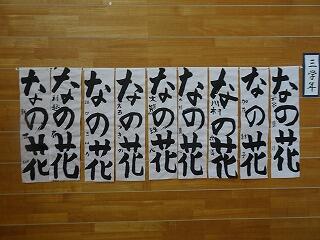 三学年
なの花
なの花
なの花
なの花
なの花
なの花
なの花
なの花
なの花